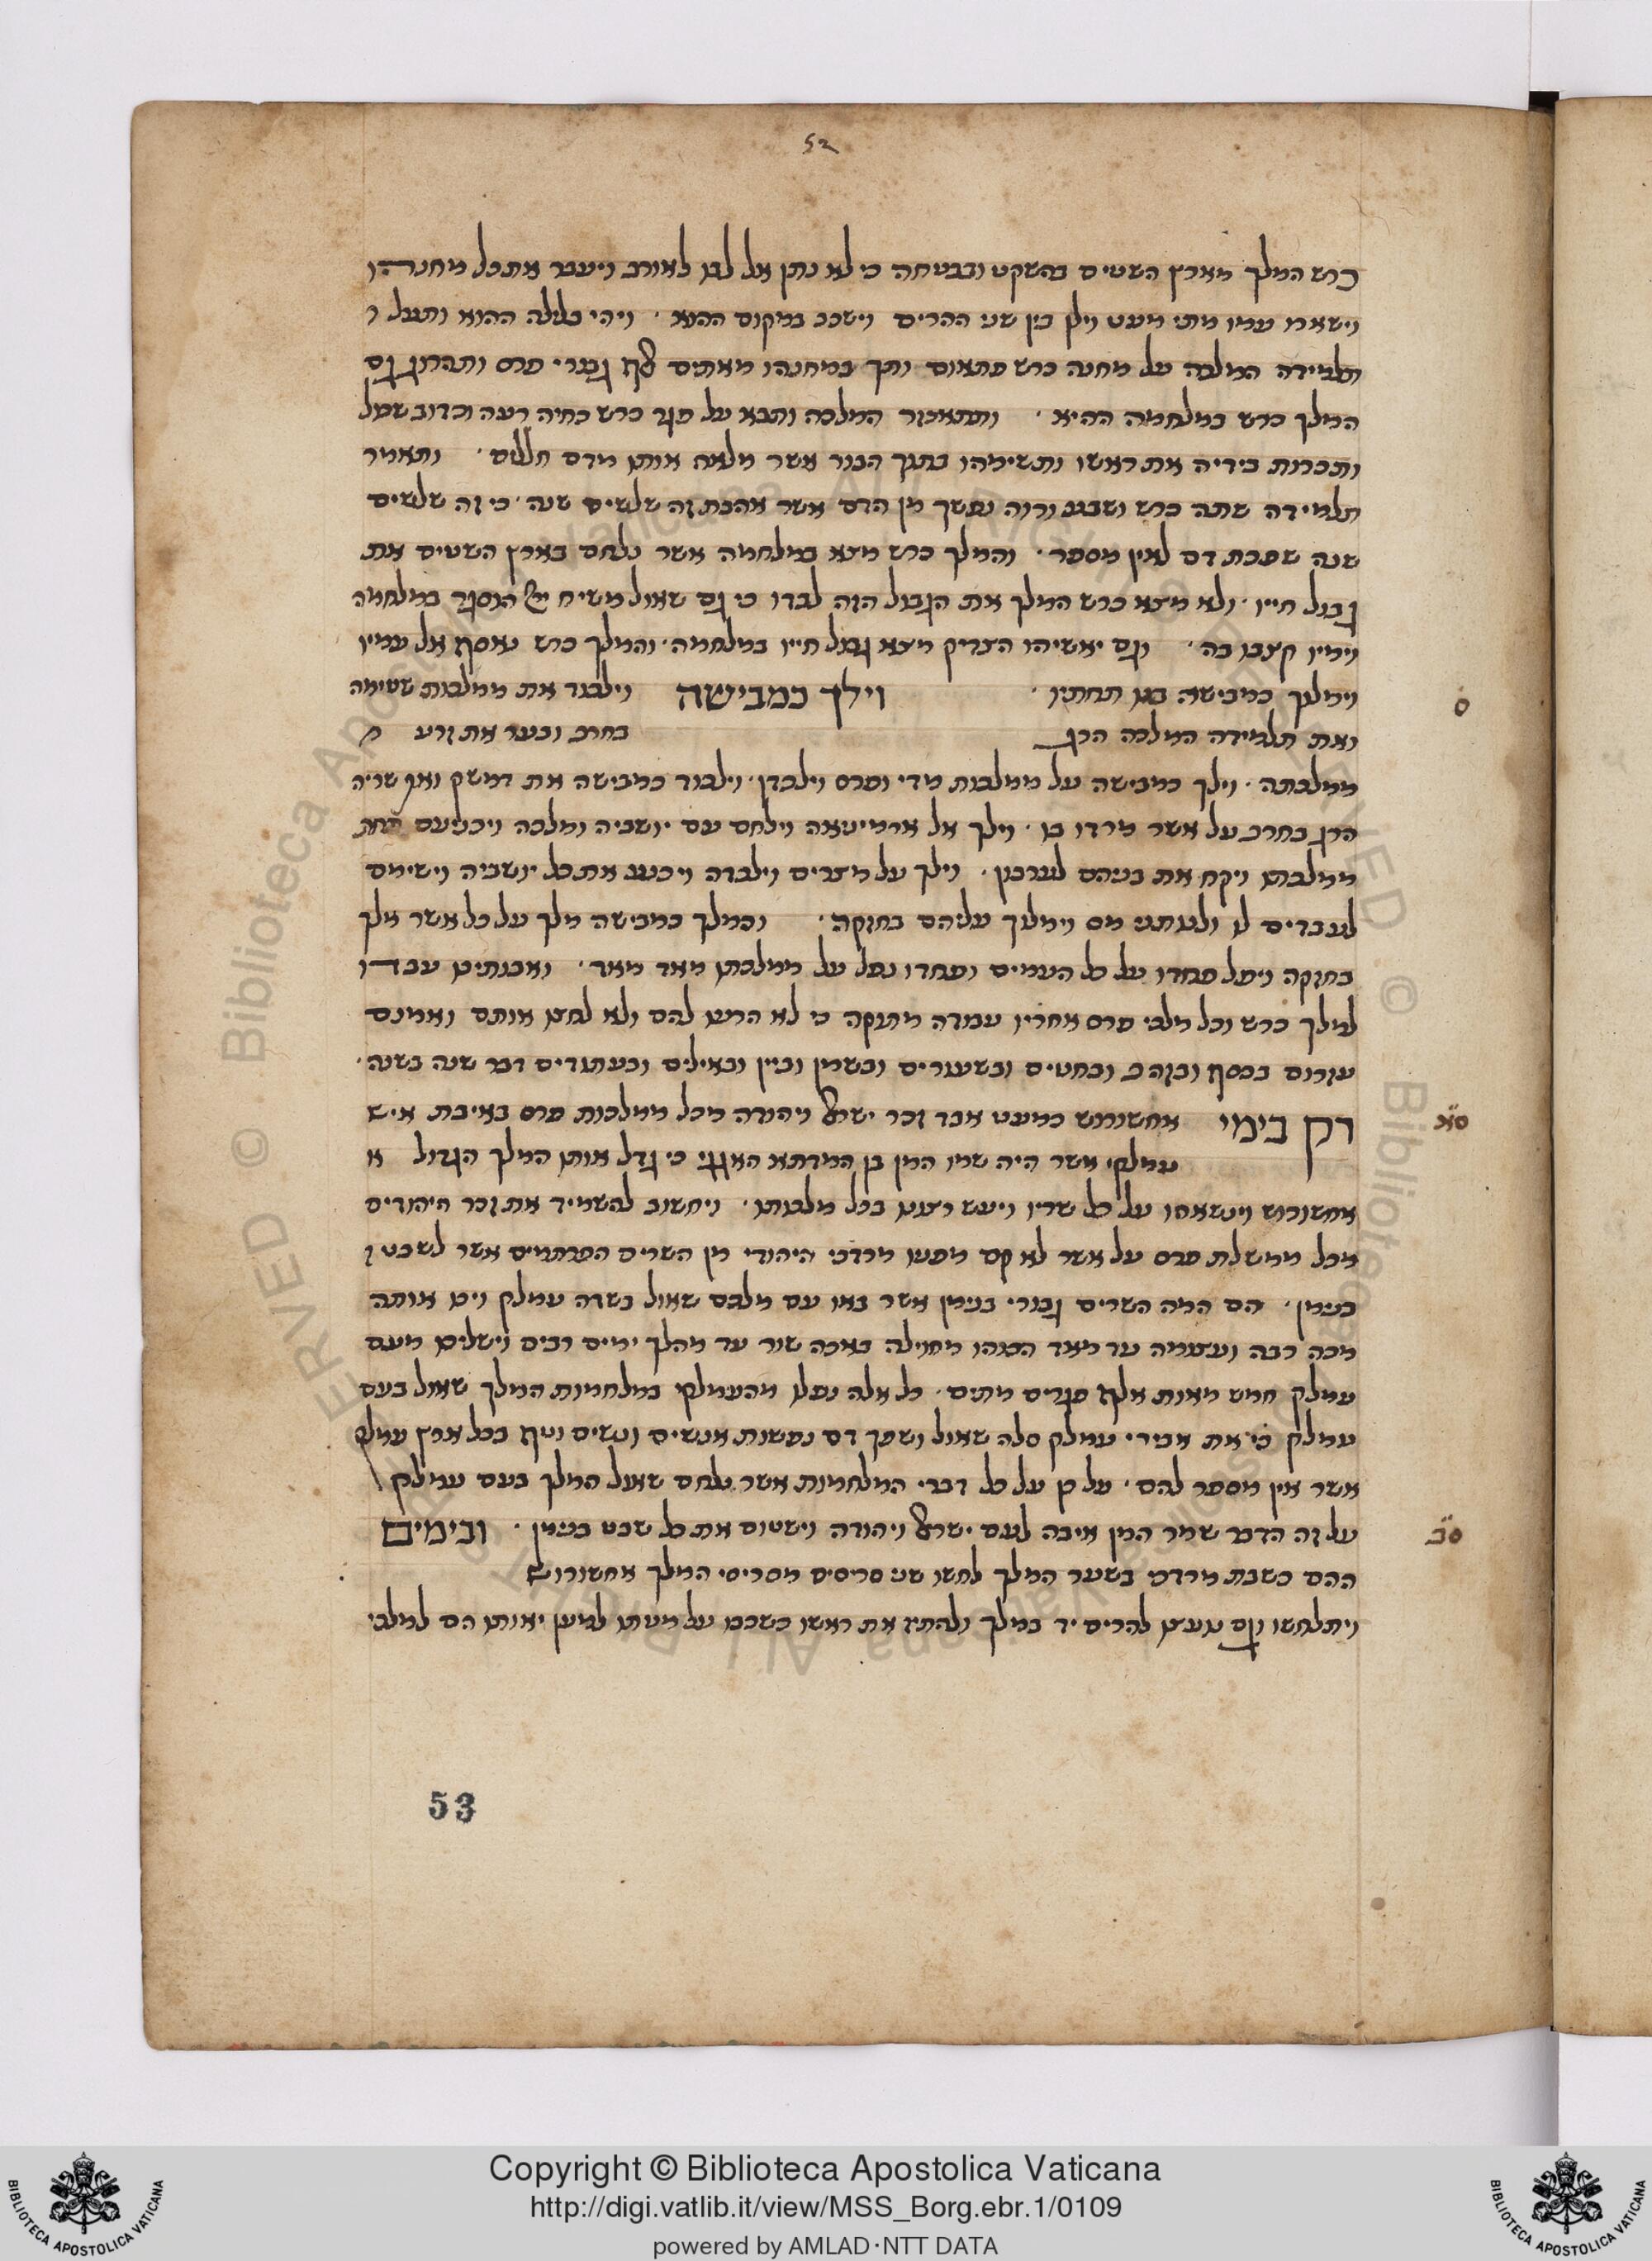 52
כרש המלך מארץ השטים בהשקט ובבטחה כי לא נתן אל לבו לאורב ויעבר את כל מחנהו
וישאר עמו מתי מעט וילן בין שני ההרים וישכב במקום ההוא ויהי בלילה ההוא ותפול
תלמידה המלכה על מחנה כרש פתאום ותך במחנהו מאתים אלף גבורי פרס ותהרוג גם
המלך כרש במלחמה ההיא ותתאכזר המלכה ותבא על פגר כרש כחיה רעה וכדוב שכול
ותכרות בידיה את ראשו ותשימהו בתוך הנוד אשר מלאה אותו מדם חללים ותאמר
תלמידה שתה כרש ושבע ורוה נפשך מן הדם אשר אהבת זה שלשים שנה כי זה שלשים
שנה שפכת דם לאין מספר והמלך כרש מצא במלחמה אשר נלחם בארץ השטים את
גבול חייו ולא מצא כרש המלך את הגבול הזה לבדו כי גם שאול משיח יי הוסגר במלחמה
וימיו קצבו בה וגם יאשיהו הצדיק מצא גבול חייו במלחמה והמלך כרש נאסף אל עמיו
וימלוך כמבישה בנו תחתיו וילך כמבישה וילכוד את ממלכות שטימה
ואת תלמידה המלכה הרג בחרב ובער את זרע
ממלכתה וילך כמבישה על ממלכות מדי ופרס וילכדן וילכוד כמבישה את דמשק ואת שריה
הרג בחרב על אשר מרדו בו וילך אל ארמיניאה וילחם עם יושביה ומלכה ויכניעם תחת
ממלכתו ויקח את בניהם לערבון וילך על מצרים וילכדה ויכנע את כל יושביה וישימם
לעבדים לו ולנותני מס וימלוך עליהם בחזקה וכמלך כמבישה מלך על כל אשר מלך
בחזקה ויפל פחדו על כל העמים ופחדו נפל על ממלכתו מאד מאד ואבותינו עבדו
למלך כרש וכל מלכי פרס אחריו עבודה מתוקה כי לא הרעו להם ולא לחצו אותם ואמנם
עזרום בכסף ובזהב ובחטים ובשעורים ובשמן וביין ובאילים ובעתודים דבר שנה בשנה
רק בימי אחשורוש כמעט אבד זכר ישראל ויהודה מכל ממלכות פרס באיבת איש
עמלקי אשר היה שמו המן בן המדתא האגגי כי גדל אותו המלך הגדול א
אחשורוש וינשאהו על כל שריו ויעש רצונו בכל מלכותו ויחשוב להשמיד את זכר היהודים
מכל ממשלת פרס על אשר לא קם מפניו מרדכי היהודי מן השרים הפרתמים אשר לשבט
בנימן הם המה השרים גבורי בנימן אשר באו עם מלכם שאול בשדה עמלק ויכו אותה
מכה רבה ועצומה עד מאד הכוהו מחוילה באכה שור עד מהלך ימים רבים וישליכו מעם
עמלק חמש מאות אלף פגרים מתים כל אלה נפלו מהעמלקי במלחמות המלך שאול בעם
עמלק כי את אבירי עמלק סלה שאול ושפך דם נפשות אנשים ונשים וטף בכל ארץ עמלק
אשר אין מספר להם על כן על כל דברי המלחמות אשר נלחם שאול המלך בעם עמלק
על זה הדבר שמר המן איבה לעם ישראל ויהודה וישטום את כל שבט בנימן ובימים
ההם בשבת מרדכי בשער המלך לחשו שני סריסים מסריסי המלך אחשורוש
ויתלחשו וגם נועצו להרים יד במלך ולהתיז את ראשו בשכבו על מטתו למען יאותו הם למלכי
ס
סא
סב
53
Copyright © Biblioteca Apostolica Vaticana
http://digi.vatlib.it/view/MSS_Borg.ebr.1/0109
powered by AMLAD·NTT DATA
BIBLIOTECA APOSTOLICA VATICANA
BIBLIOTECA APOSTOLICA VATICANA